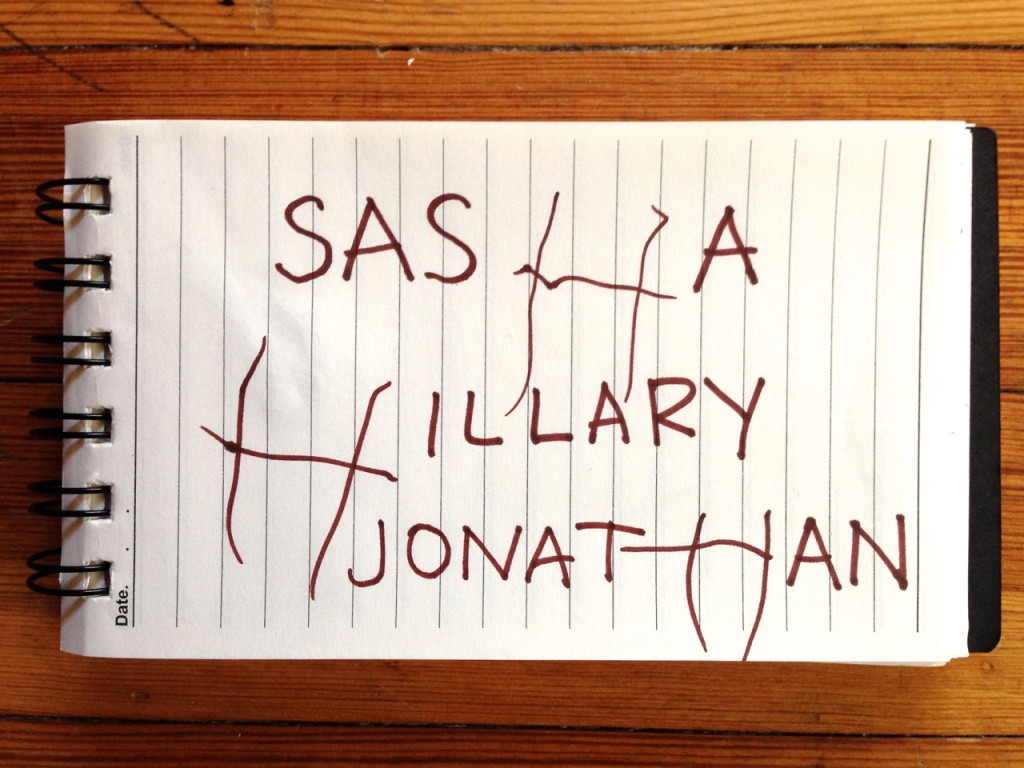 SASHA
HILLARY
JONATHAN
Date.